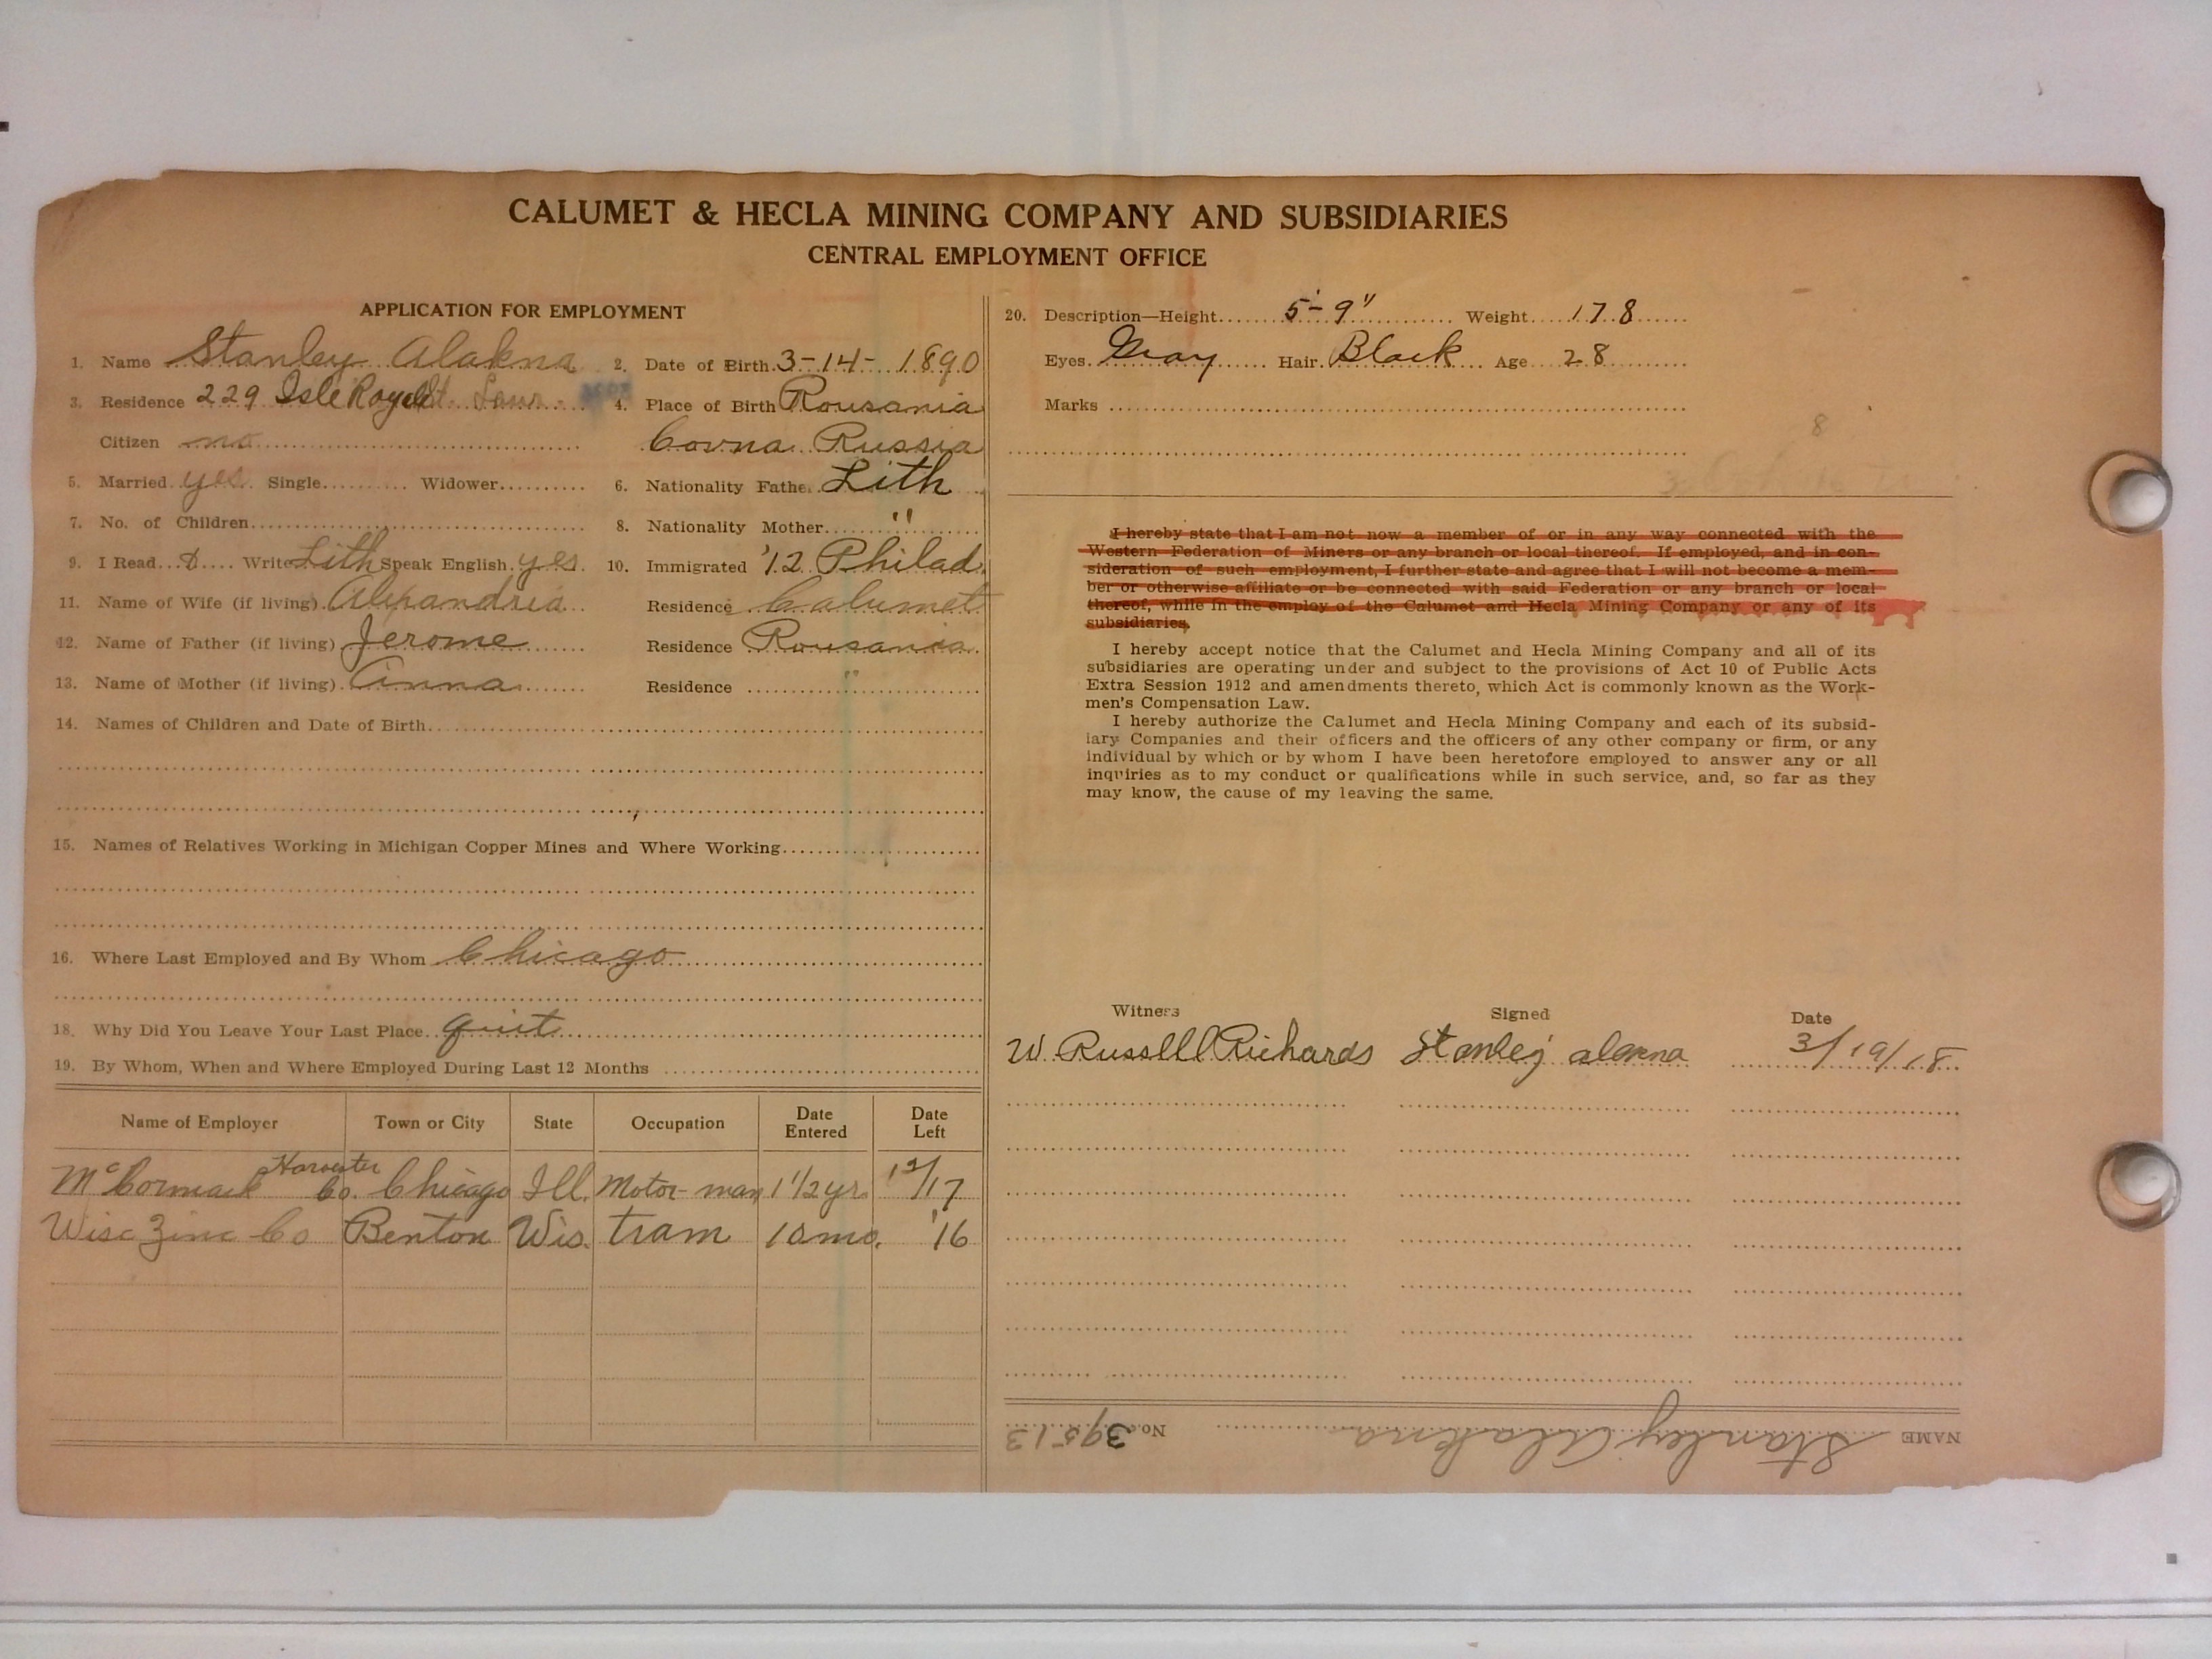 CALUMET & HECLA MINING COMPANY AND SUBSIDIARIES
CENTRAL EMPLOYMENT OFFICE
APPLICATION FOR EMPLOYMENT
1. Name Stanley Alakna 2. Date of Birth 3-14-1890
3. Residence 229 Isle Royale St. Laur. 4. Place of Birth Rousania
Citizen no Covna Russia
5. Married yes Single Widower 6. Nationality Father Lith
7. No. of Children 8. Nationality Mother "
9. I Read & Write Lith Speak English yes. 10. Immigrated '12 Philad.
11. Name of Wife (if living) Alexandria Residence Calumet
12. Name of Father (if living) Jerome Residence Rousania
13. Name of Mother (if living) Anna Residence "
14. Names of Children and Date of Birth
15. Names of Relatives Working in Michigan Copper Mines and Where Working
16. Where Last Employed and By Whom Chicago
18. Why Did You Leave Your Last Place quit
19. By Whom, When and Where Employed During Last 12 Months
Name of Employer Town or City State Occupation Date Entered Date Left
McCormack Harvester Co. Chicago Ill. Motor-man 1 1/2 yr. 12/17
Wisc Zinc Co Benton Wis. tram 10 mo. '16
20. Description—Height 5'-9" Weight 178
Eyes Gray Hair Black Age 28
Marks
8
I hereby state that I am not now a member of or in any way connected with the
Western Federation of Miners or any branch or local thereof. If employed, and in con-
sideration of such employment, I further state and agree that I will not become a mem-
ber or otherwise affiliate or be connected with said Federation or any branch or local
thereof, while in the employ of the Calumet and Hecla Mining Company or any of its
subsidiaries.
I hereby accept notice that the Calumet and Hecla Mining Company and all of its
subsidiaries are operating under and subject to the provisions of Act 10 of Public Acts
Extra Session 1912 and amendments thereto, which Act is commonly known as the Work-
men's Compensation Law.
I hereby authorize the Calumet and Hecla Mining Company and each of its subsid-
iary Companies and their officers and the officers of any other company or firm, or any
individual by which or by whom I have been heretofore employed to answer any or all
inquiries as to my conduct or qualifications while in such service, and, so far as they
may know, the cause of my leaving the same.
Witness Signed Date
W. Russell Richards Stanley alakna 3/19/18
NAME Stanley Alakna No. 39513